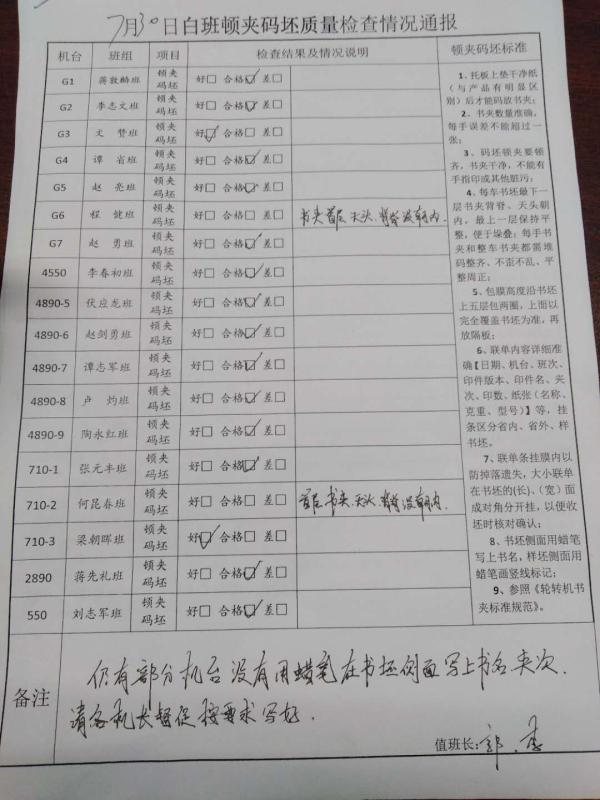 7月30日白班顿夹码坯质量检查情况通报
机台 班组 项目 检查结果及情况说明 顿夹码坯标准
G1 蒋敦麟班 顿夹码坯 好□ 合格☑ 差□
G2 李志文班 顿夹码坯 好□ 合格☑ 差□
G3 文 赞班 顿夹码坯 好☑ 合格□ 差□
G4 谭 省班 顿夹码坯 好□ 合格☑ 差□
G5 赵 亮班 顿夹码坯 好□ 合格☑ 差□
G6 程 健班 顿夹码坯 好□ 合格☑ 差□ 书夹首层天头、背脊没朝内.
G7 赵 勇班 顿夹码坯 好□ 合格☑ 差□
4550 李春初班 顿夹码坯 好□ 合格☑ 差□
4890-5 伏应龙班 顿夹码坯 好□ 合格☑ 差□
4890-6 赵剑勇班 顿夹码坯 好□ 合格☑ 差□
4890-7 谭志军班 顿夹码坯 好□ 合格☑ 差□
4890-8 卢 灼班 顿夹码坯 好□ 合格☑ 差□
4890-9 陶永红班 顿夹码坯 好□ 合格☑ 差□
710-1 张元丰班 顿夹码坯 好□ 合格☑ 差□
710-2 何昆春班 顿夹码坯 好□ 合格☑ 差□ 首层书夹、天头、背脊没朝内.
710-3 梁朝晖班 顿夹码坯 好☑ 合格□ 差□
2890 蒋先礼班 顿夹码坯 好□ 合格☑ 差□
550 刘志军班 顿夹码坯 好□ 合格☑ 差□
1、托板上垫干净纸
（与产品有明显区
别）后才能码放书夹；
2、书夹数量准确，
每手误差不能超过一
张；
3、码坯顿夹要顿
齐，书夹干净，不能有
手指印或其他脏污；
4、每车书坯最下一
层书夹背脊、天头朝
内，最上一层保持平
整，便于垛叠；每手书
夹和整车书夹都需堆
码整齐、不歪不乱、平
整周正；
5、包膜高度沿书坯
上五层包两圈，上面以
完全覆盖书坯为准，再
放隔板；
6、联单内容详细准
确【日期、机台、班次、
印件版本、印件名、夹
次、印数、纸张（名称、
克重、型号）】等，挂
条区分省内、省外、样
书坯。
7、联单条挂膜内以
防掉落遗失，大小联单
在书坯的(长)、（宽）面
成对角分开挂，以便收
坯时核对确认；
8、书坯侧面用蜡笔
写上书名，样坯侧面用
蜡笔画竖线标记；
9、参照《轮转机书
夹标准规范》。
备注
仍有部分机台没有用蜡笔在书坯侧面写上书名夹次.
请各机长督促按要求写好.
值班长：